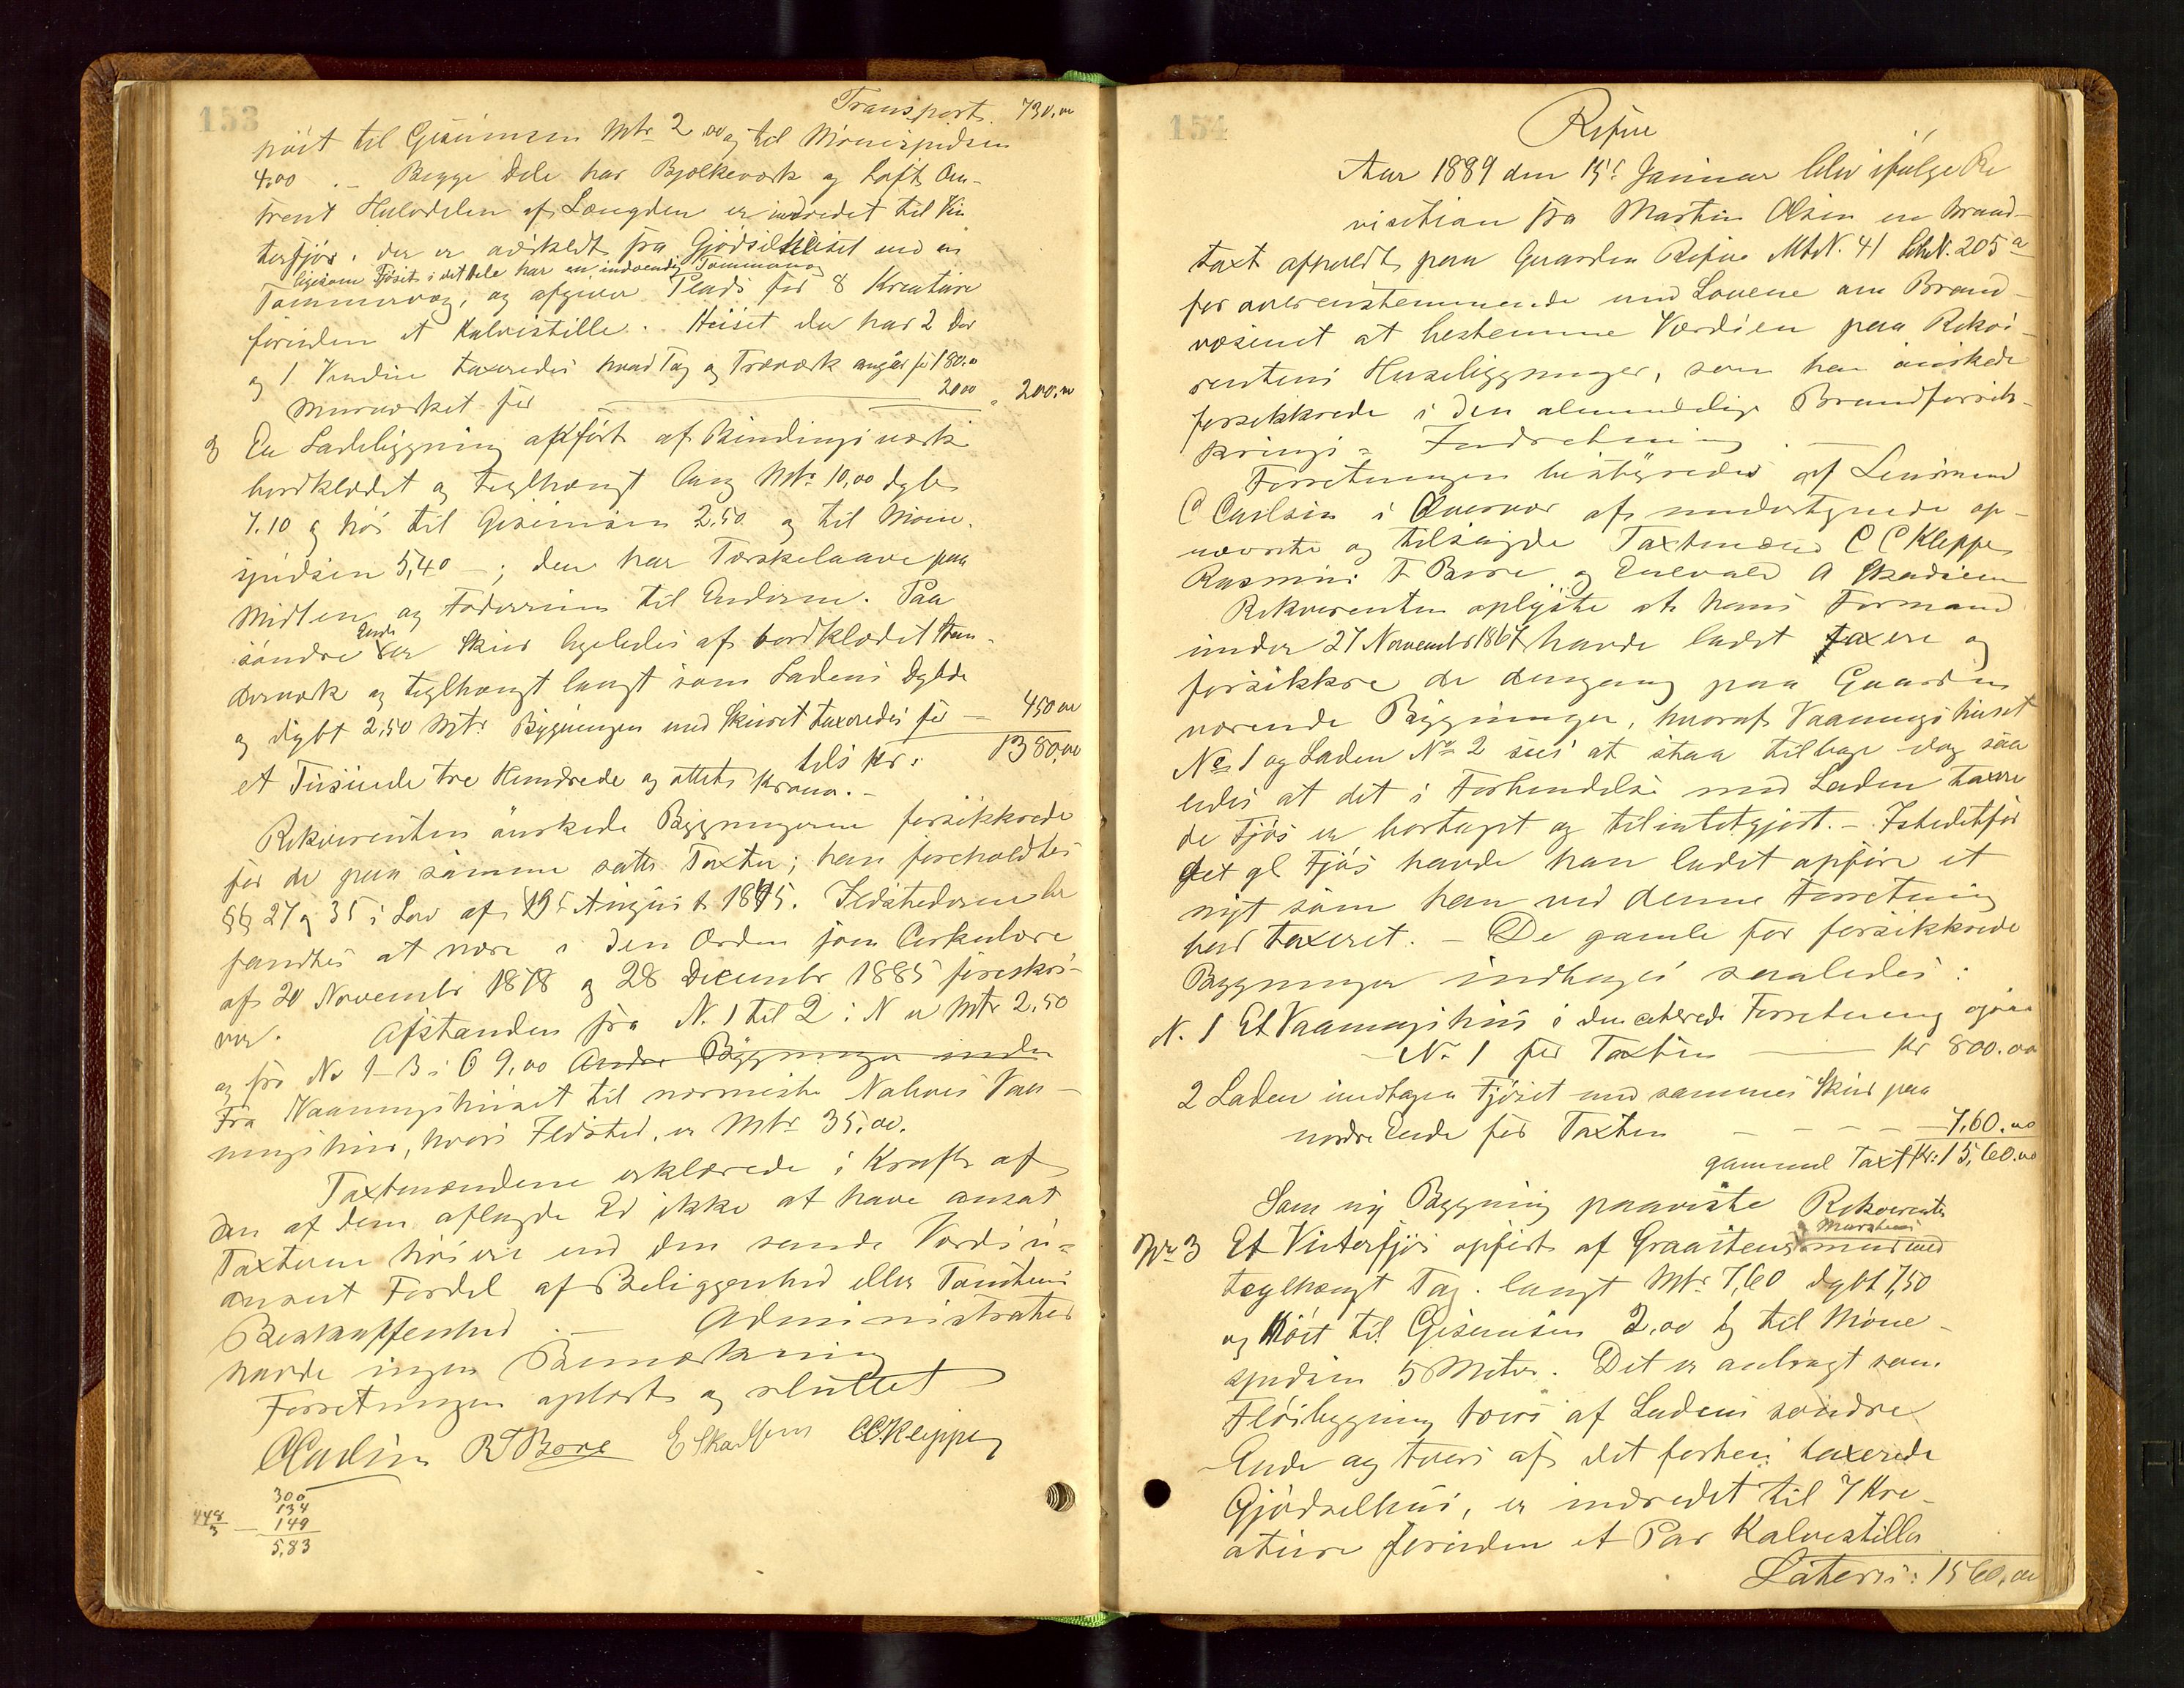 153
Transport. 730.00
höit til Gesimsen Mtr 2.00 og til Mönespidsen
4,00 .– Begge Dele har Bjælkeværk og Loft. Om-
trent Halvdelen af Længden er indredet til Vin
terfjös, der er adskildt fra Gjödselhuset med en
ligesom Fjöset i det hele har en indvendig Tømmer
Tømmervæg, og afgiver Plads for 8 Kreature
foruden et Kalvestille. Huset der har 2 Dør
og 1 Vindue taxeredes hvad Tag og Træværk angår for 180.0
Murværket for 20 00 = 200.00
3 En Ladebygning opført af Bindingsværk
bordklædt og teglhængt lang Mtr 10,00 dyb
7.10 og høi til Gesimsen 2.50 og til Möne-
spidsen 5,40 –; den har Tærskelaave paa
Midten og Foderrum til Enderne. Paa
söndre Ende er Skur ligeledes af bordklædt Sten-
derværk og teglhængt langt som Ladens Dybde
og dybt 2,50 Mtr. Bygningen med Skuret taxeredes for – 450.00
tils Kr: 1380.00
et Tusinde tre Hundrede og ottets Kroner.–
Rekvirenten önskede Bygningerne forsikkrede
for de paa samme satte Taxter; han foreholdtes
§§ 27 og 35 i Lov af 19de August 1845. Ildstederne be
fandtes at være i den Orden som Cirkulære
af 20 November 1878 og 28 December 1885 foreskri-
ver. Afstanden fra N. 1 til 2 i N er Mtr 2.50
og fra No 1–3 i O 9,00 Andre Bygninger inden
Fra Vaaningshuset til nærmeste Nabos Vaa-
ningshus, hvori Ildsted, er Mtr 35,00.
Taxtmændene erklærede i Kraft af
den af dem aflagde Ed ikke at have ansat
Taxterne høiere end den sande Værdi u-
anseet Fordel af Beliggenhed eller Tomtens
Beskaffenhed .– Administrator
havde ingen Bemærkning
Forretningen oplæst og sluttet
CCarlsen RTBore E Skadsem CCKleppe
300
134
448/3 – 149
5,83
154
Refive
Aar 1889 den 15de Januar blev ifølge Re
visition fra Martin Olsen en Brand-
taxt afholdt paa Gaarden Refive MtN. 41 LbN. 205 a
for overensstemmende med Lovene om Brand-
væsenet at bestemme Værdien paa Rekvi-
rentens Husebygninger, som han önskede
forsikkrede i den almindelige Brandforsik-
krings- Indretning .–
Forretningen bestyredes af Lensmand
C Carlsen i Overvær af undertegnede op-
nævnte og tilsagde Taxtmænd C C Kleppe
Rasmus T Bore og Enevald A Skadsem
Rekvirenten oplyste at hans Formand
under 27 November 1867 havde ladet taxere og
forsikkre de dengang paa Gaarden
værende Bygninger, hvoraf Vaaningshuset
No 1 og Laden No 2 sees at staa tilbage dog saa
ledes at det i Forbindelse med Laden taxere
de Fjös er bortaget og tilintetgjort.– Istedetfor
det gl Fjös havde han ladet opføre et
nyt som han ved denne Forretning
bad taxeret.– De gamle før forsikkrede
Bygninger indtages saaledes:
N. 1 Et Vaaningshus i den citerede Forretning ogsaa
No 1 for Taxten – Kr 800.00
2 Laden indtagen Fjöset med sammes Skur paa
nordre Ende for Taxten – – – – 7,60.00
gammel Taxt Kr: 15,60.00
Som ny Bygning paaviste Rekvirenten
Murstens
No 3 Et Vinterfjös opført af Graastensmur med
teglhængt Tag. langt Mtr. 7,60 dybt 7,50
og höit til Gesimsen 2,00 og til Möne-
spidsen 5 Meter. Det er anbragt som
Flöibygning tvers af Ladens söndre
Ende og tvers af det forhen taxerede
Gjödselhus, er indredet til 7 Kre-
ature foruden et Par Kalvestiller
Lateris: 1560,00